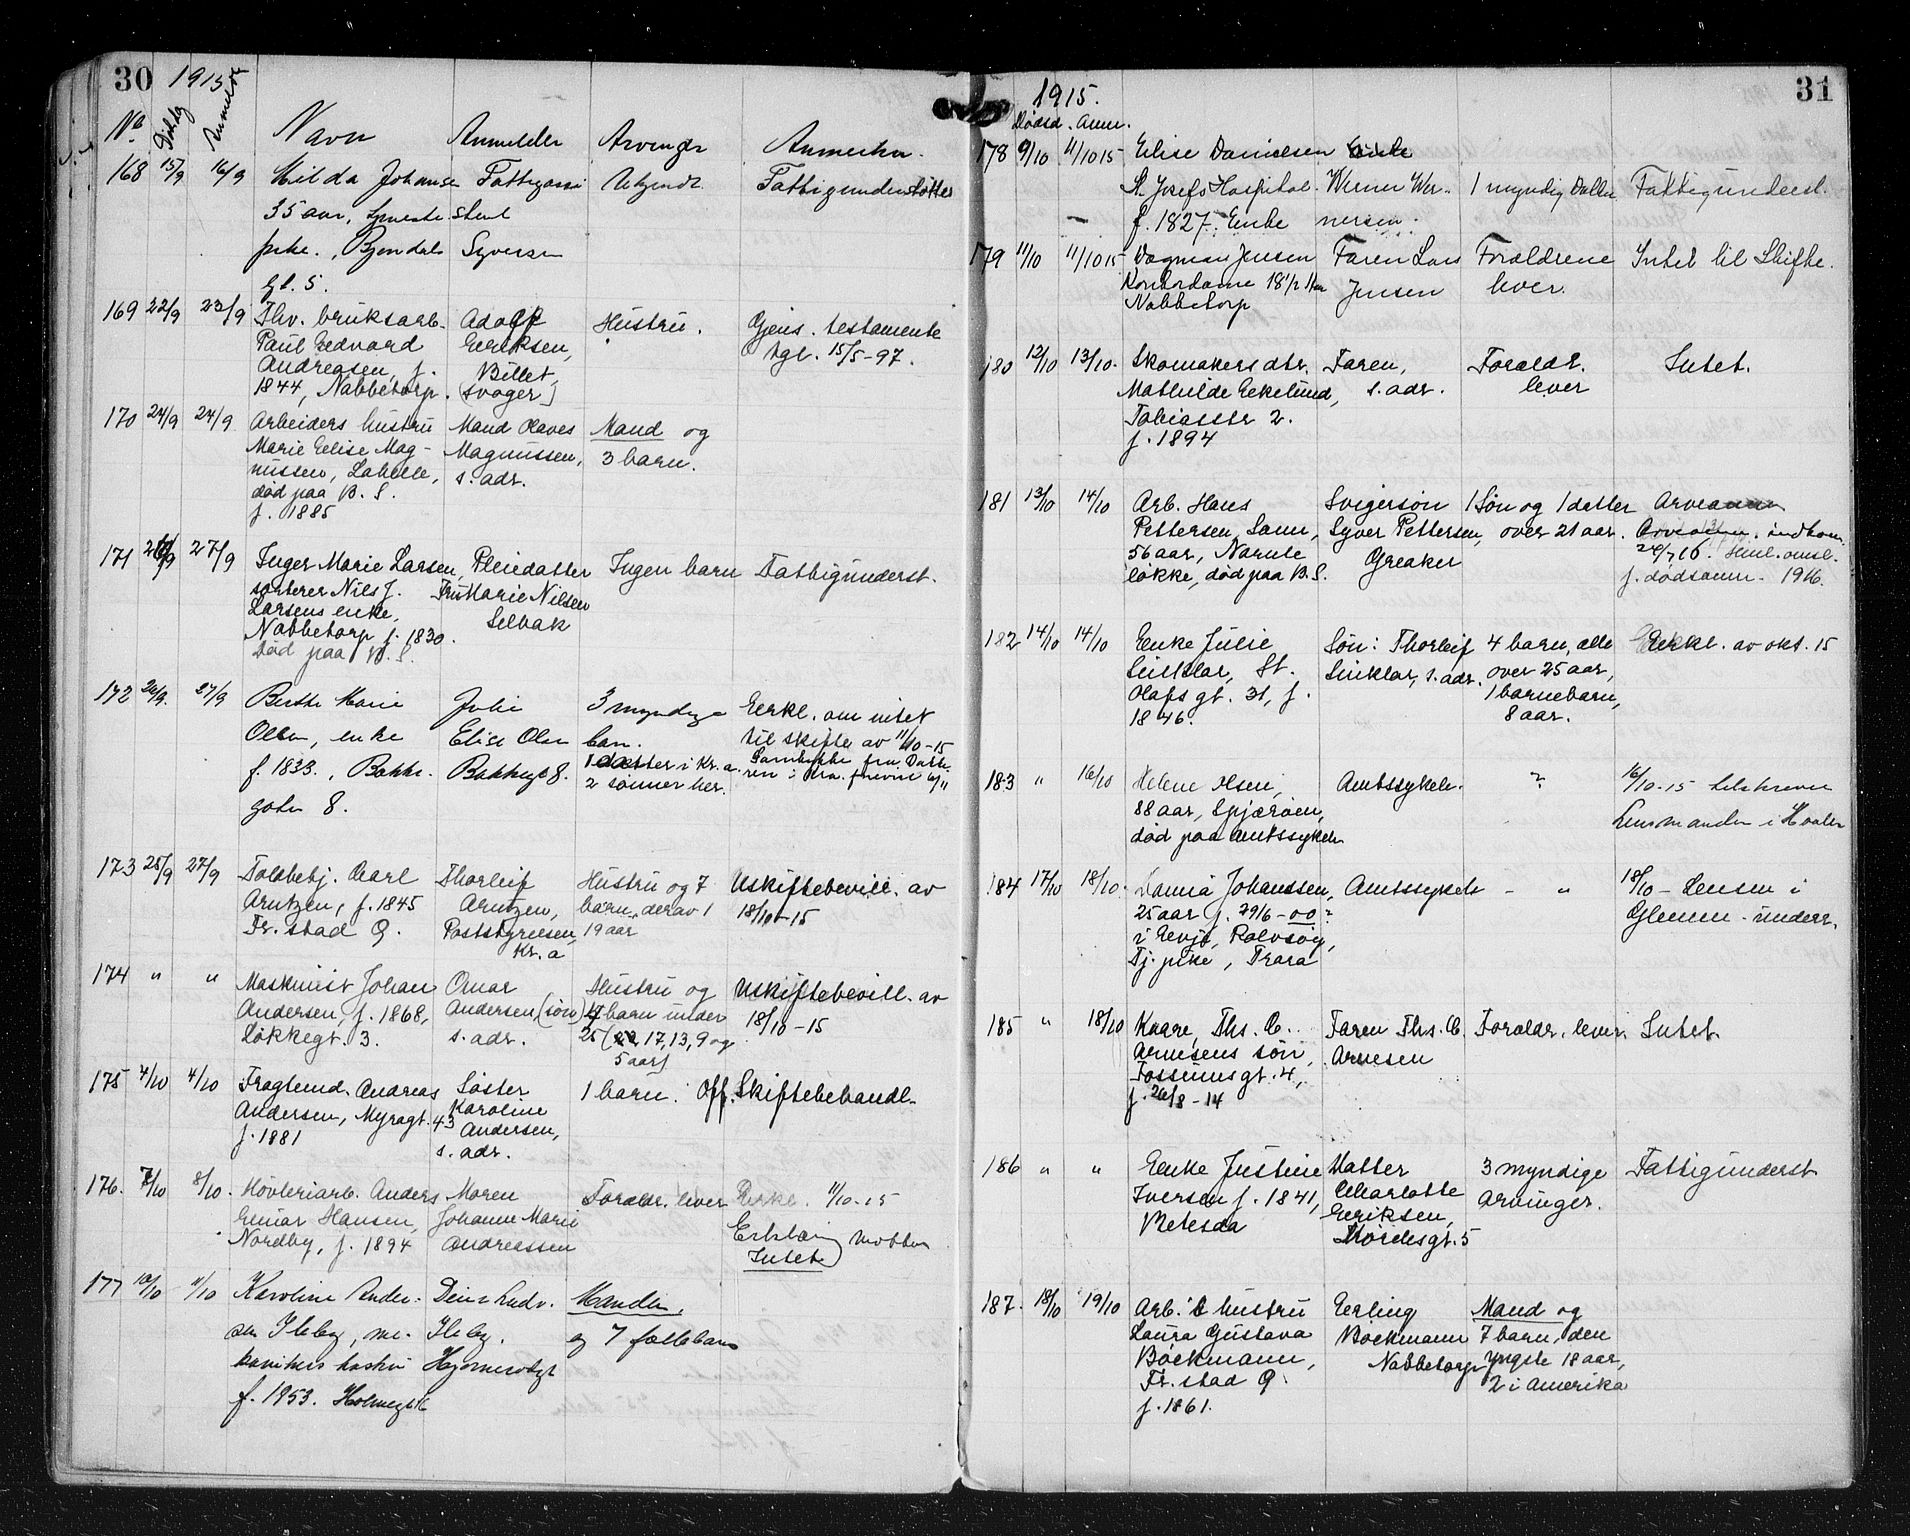 30
1915
No. Dödsdg Anmeldt Navn Anmelder Arvinger Anmerkn.
168 15/9 16/9 Hilda Johanse Fattigassi Ukjendt Fattigunderstöttet
35 aar, tjeneste stent
pike, Bjendals Syversen
gt. 5.
169 22/9 23/9 Fhv. bruksarb. Adolf Hustru. Gjens. testamente
Paul Edvard Eeriksen, tgl. 15/5-97.
Andreasen, f. Billet,
1844, Nabbetorp. (svoger)
170 24/9 24/9 Arbeiders hustru Mand Olaves Mand og
Marie Elise Mag- Magnussen, 3 barn.
nussen, Labelle, s. adr.
död paa B. S.
f. 1885
171 27/9 Inger Marie Larsen, Pleiedatter Ingen barn Fattigunderst.
sorterer Nils J. Fru Marie Nilsen
Larsens enke, Selbak
Nabbetorp f. 1830.
Död paa B. S.
172 26/9. 27/9 Berthe Marie Julie 3 myndige Eerkl. om intet
Olsen, enke Elise Olsen barn. til skifte av 11/10-15
f. 1833., Bakke- Bakkegt 8. 1 datter i Kr.a. Samtykke fra Datte-
gaten 8. 2 sönner her. ren i Kra.
173 25/9 27/9 Toldbetj. Carl Thorleif Hustru og 7 Uskiftebevill. av
Arntzen, f. 1845 Arntzen, barn, derav 1 18/10-15
Fr.stad Ø. Poststyrelsen, 19 aar
Kr.a
174 " " Maskinist Johan Omar Hustru og Uskiftebevill. av
Andersen, f. 1868, Andersen, (sön) 4 barn under 18/10-15
Lökkegt. 3. s. adr. 25 (17, 13, 9 og
5 aar)
175 4/10 4/10 Fragtemd. Andreas Söster 1 barn. Off. Skiftebehandl.
Andersen, Myragt. 43 Karoline
f. 1881 Andersen,
s. adr.
176. 7/10 8/10. Hövleriarb. Anders Moren Foreldr. lever Erkl. 11/10-15
Einar Hansen, Johanne Marie Erklæring mottat
Nordby, f. 1894 Andreassen Intet
177 10/10 11/10 Karoline Ander- Ludv. Manden
sen Ileby, me- Ileby. og 7 fællesbarn
kanikers hustru
f. 1853.
31
1915.
Dödsd. Anm.
178 9/10 11/10 15 Elise Danielsen
St. Josefs Hospital. Werner Wer- 1 myndig Datter Fattigunderst.
f. 1827. Enke nersen.
179 11/10 11/10 15 Dagmar Jensen Faren Lars Forældrene Intet til Skifte.
Kontordame 18 1/2 Aar Jensen lever.
Nabbetorp
180 12/10 13/10. Skomakers dtr. Faren, Foreldr. Intet.
Mathilde Eekelund, s. adr. lever
Tobiasstr 2.
f. 1894
181 13/10 14/10 Arb. Hans Svigersön 1 Sön og 1 datter
Pettersen, Sann, Syver Pettersen, over 21 aar. indkom
56 aar, Narnte Greaker
lökke, död paa B. S. f. dödsanm. 1916.
182 14/10 14/10 Eenke Julie Sön: Thorleif 4 barn, alle Eerkl. av okt. 15
Sinklar, St. Sinklar, s. adr. over 25 aar,
Olafs gt. 31, f. 1 barnebarn,
1846. 8 aar.
183 " 16/10 Helene Olsen, Amtssykeh. ? 16/10-15 tilskrevet
88 aar, Spjæröen, Lensmanden i Hvaler
död paa Amtssykeh
184 17/10 18/10. Johanssen, Amtssykeh - " 18/10- Lensm i
25 aar f. 29/6-00? Glemm. underr.
i Eevje, Rolvsöy,
Tj. pike, Trara
185 " 18/10 Kaare, Ths. C. Faren Ths. C. Foreldr. lever. Intet
Arnesens sön, Arnesen
Fossumsgt. 4,
f. 26/8-14
186 " " Eenke Justine Datter 3 myndige Fattigunderst
Iversen f. 1841, Charlotte arvinger.
Betesda Eeriksen,
187. 18/10 19/10 Arb.'s hustru Eerling Mand og
Laura Gustava Böckmann 7 barn, den
Böckmann, Nabbetorp yngste 18 aar,
Fr.stad Ø. 2 i Amerika
f. 1861.